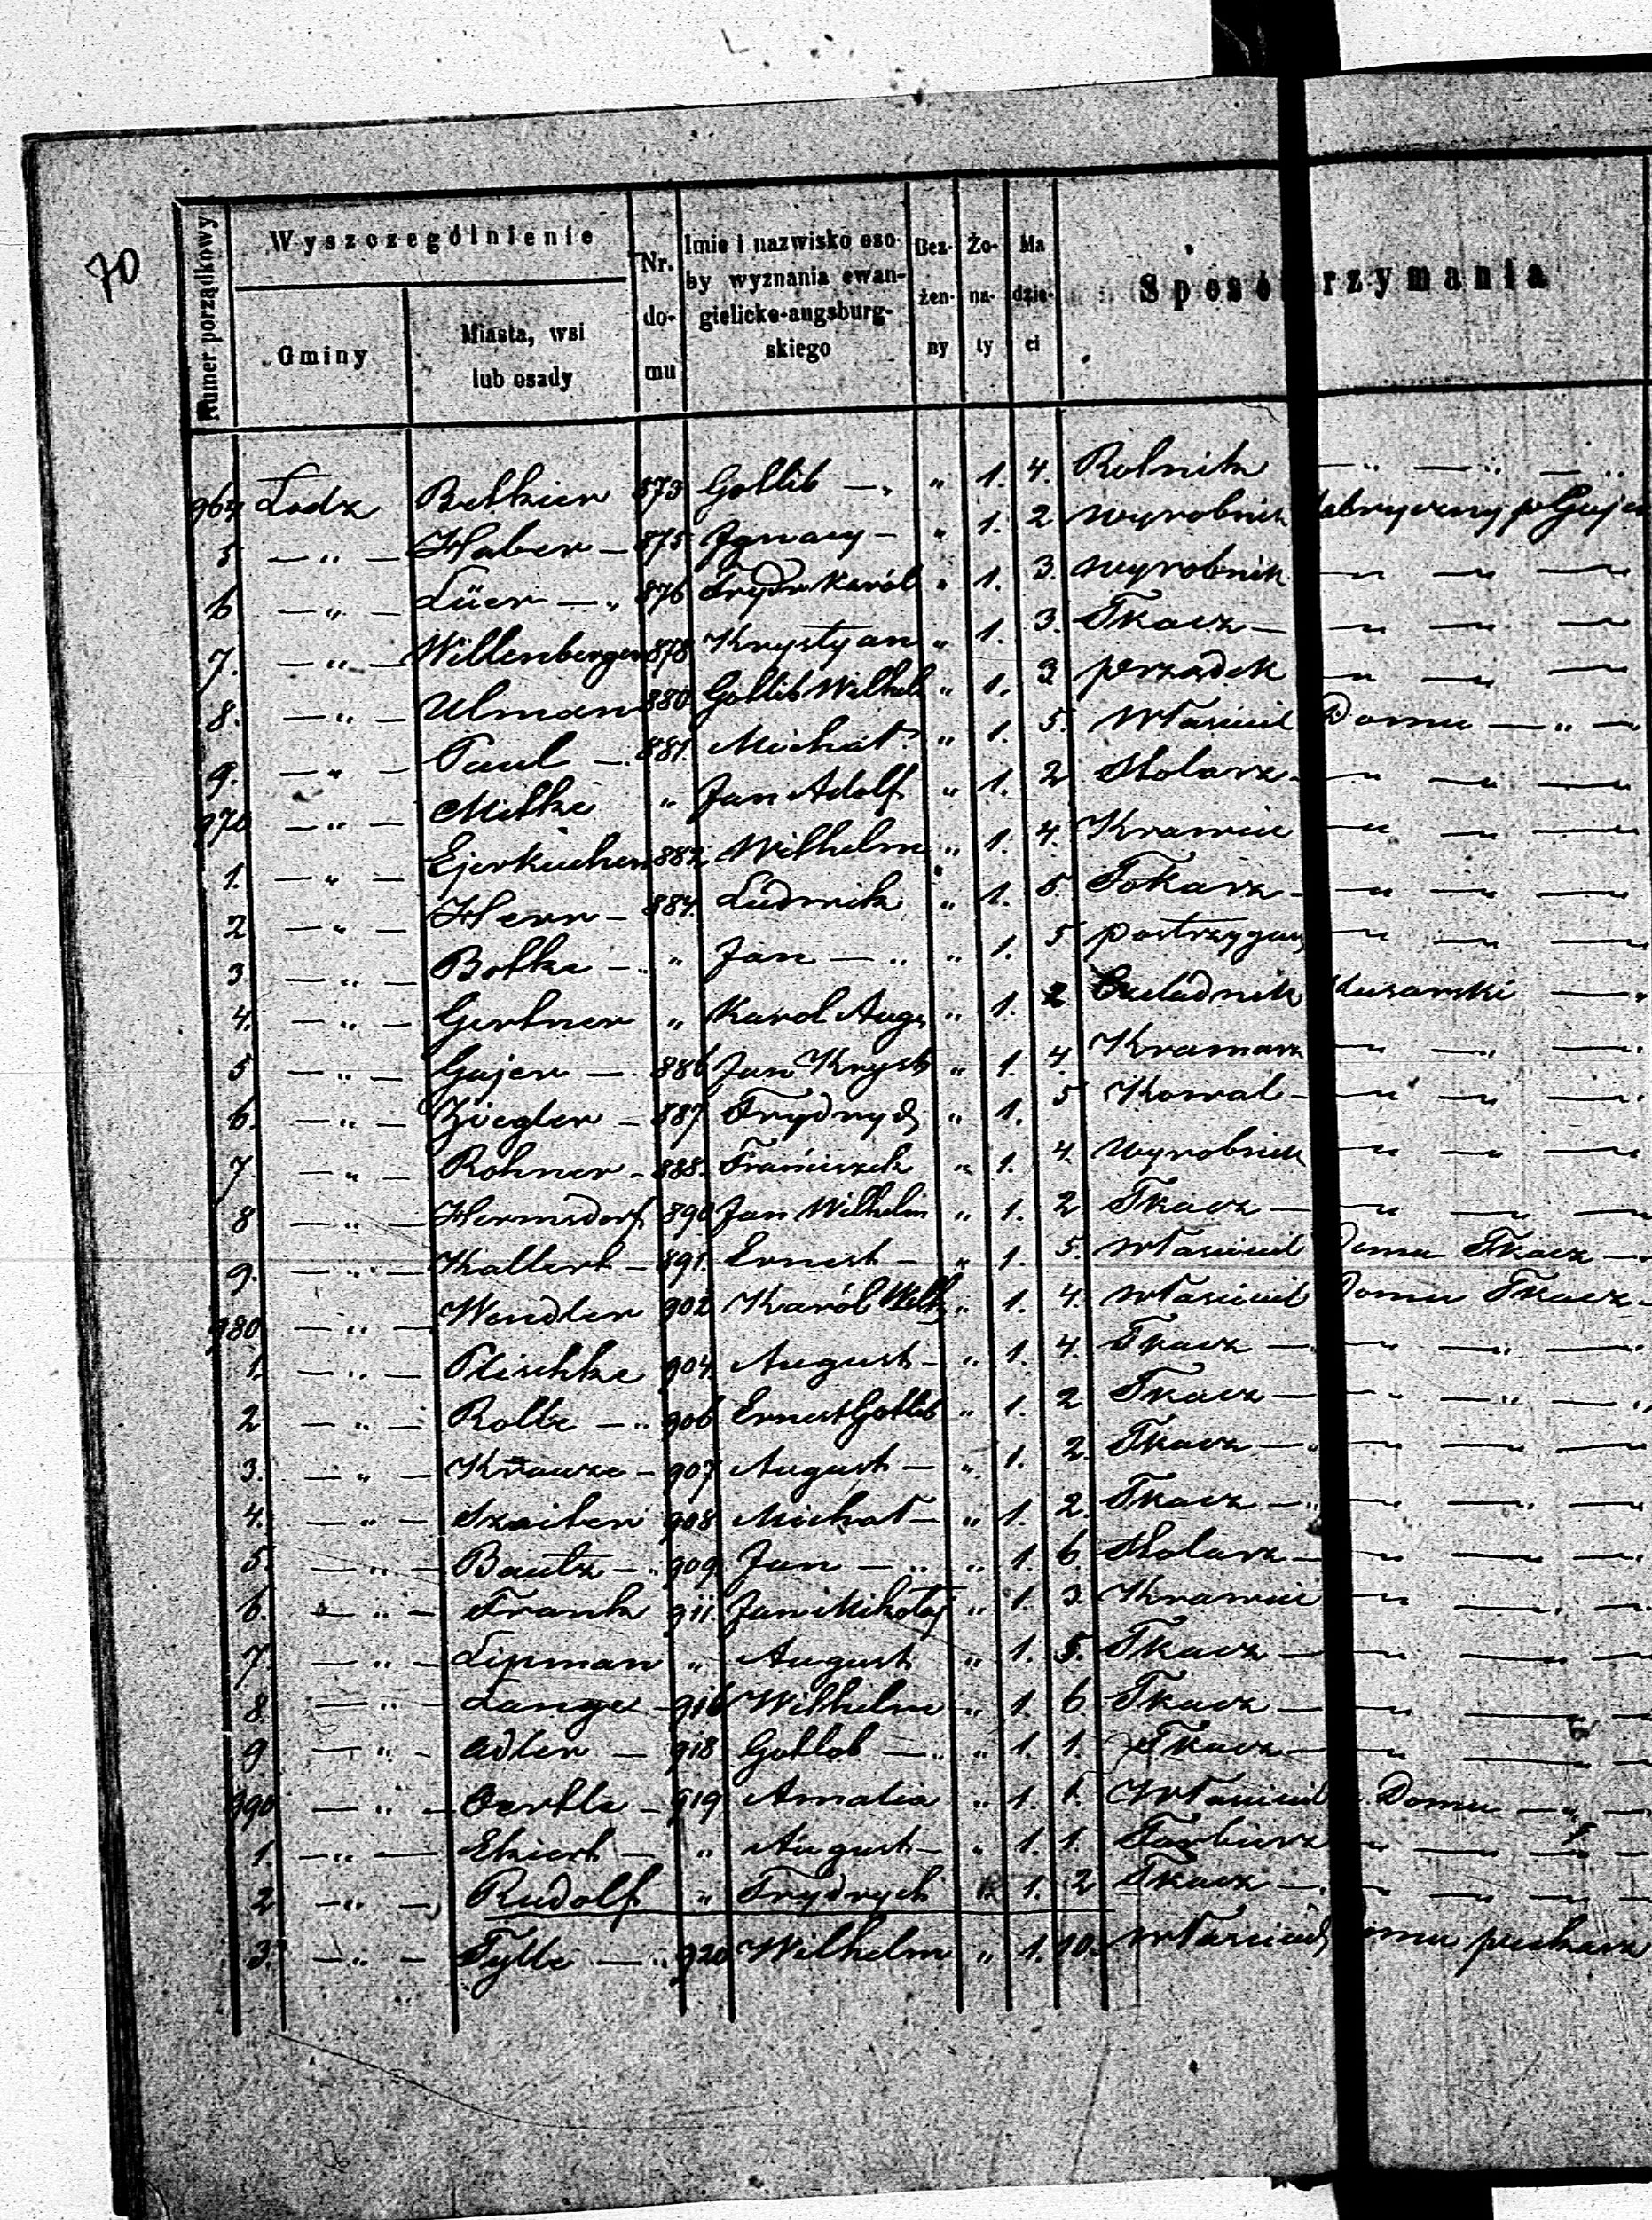 70
Numer porządkowy
Wyszczególnienie
Gminy
Miasta, wsi lub osady
Nr. do- mu
Imie i nazwisko oso- by wyznania ewan- gielicko-augsburg- skiego
Bez- żen- ny
Żo- na- ty
Ma dzie- ci
Sposó rzymania
964 Lodz Betkier 873 Gottlib — „ „ 1. 4. Rolnik — „ — „ — „
5 — „ — Haber — 875 Ignacy — „ 1. 2 wyrobnik fabryczny p Gajer
6 — „ — Lüer — „ 876 Frydr Karól „ 1. 3. wyrobnik — — —
7. — „ — Willenberger 878 Krystyan „ 1. 3. Tkacz — — — —
8. — „ — Ulman 880 Gottlib Wilhelm „ 1. 3 przadek — — —
9. — „ — Paul — 881. Michał „ 1. 5. Własciciel Domu — „ —
970 — „ — Milke „ Jan Adolf „ 1. 2 Stolarz — — — —
1. — „ — Ejerkuchen 882 Wilhelm „ 1. 4. Krawiec — — —
2 — „ — Herr — 884. Ludwik „ 1. 5. Tokarz — — — —
3. — „ — Botke — „ „ Jan — „ „ 1. 5 postrzygacz — — —
4. — „ — Gertner „ Karol Aug „ 1. 2 Czeladnik slusarski —
5 — „ — Gajer — 886 Jan Kryst „ 1. 4. Kramarz — — —
6. — „ — Ziegler — 887 Frydrych „ 1. 5 Kowal — — — —
7 — „ — Rohner — 888. Franciszek „ 1. 4. wyrobnik — — —
8 — „ — Hermsdorf 890 Jan Wilhelm „ 1. 2 Tkacz — — — —
9. — „ — Kallert — 891. Ernest — „ 1. 5. własciciel Domu Tkacz —
980 — „ — Wendler 902 Karól Wilh „ 1. 4. własciciel Domu Tkacz —
1. — „ — Plischke 904. August — „ 1. 4. Tkacz — — — —
2 — „ — Rolle — „ 906 Ernest Gottlib „ 1. 2 Tkacz — — — —
3. — „ — Krauze — 907 August — „ 1. 2. Tkacz — — — —
4. — „ — Szaiber 908 Michał — „ 1. 2. Tkacz — — — —
5. — „ — Bautz — „ 909. Jan — „ „ 1. 6 Stolarz — — — —
6. — „ — Frank 911. Jan Mikołaj „ 1. 3. Krawiec — — —
7. — „ — Lipman „ August „ 1. 5. Tkacz — — — —
8. — „ — Lange — 916 Wilhelm „ 1. 6. Tkacz — — — —
9 — „ — Adler — 918 Gottlob — „ „ 1. 1. Tkacz — — — —
990 — „ — Oertle — 919 Amalia „ 1. 1. Własciciel Domu — „ —
1. — „ — Ekiert — „ August — „ 1. 1. Farbiarz — — —
2 — „ — Rudolf „ Frydrych 1. 2 Tkacz — — — —
3. — „ — Tylle — „ 920 Wilhelm „ 1. 10. własciciel Domu piekarz